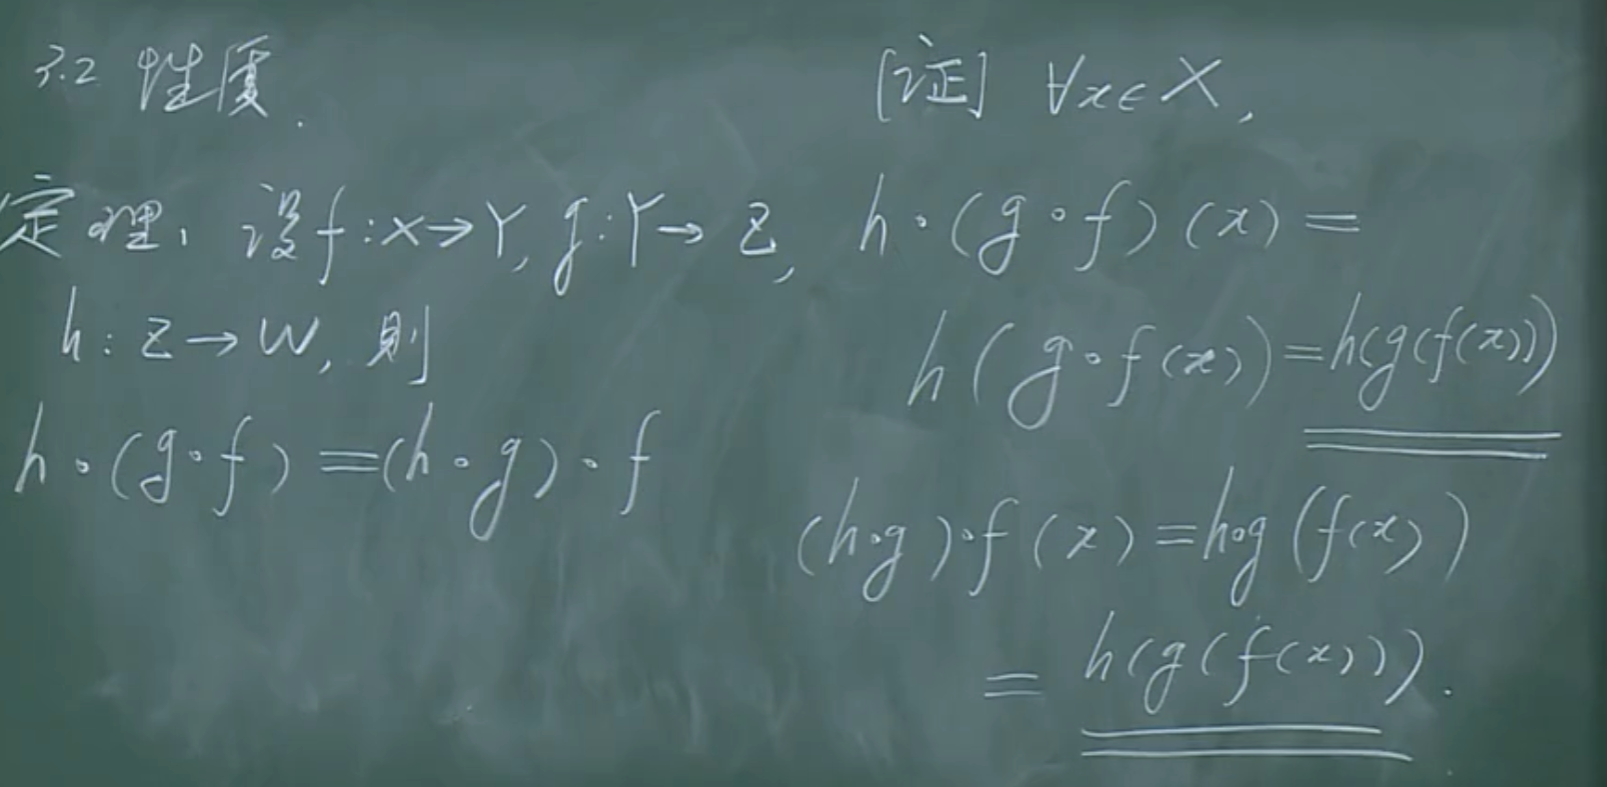 3.2 性质.
定理, 设f:X→Y, g:Y→Z,
h:Z→W, 则
h∘(g∘f)=(h∘g)∘f
[证] ∀x∈X,
h∘(g∘f)(x)=
h(g∘f(x))=h(g(f(x)))
(h∘g)∘f(x)=h∘g(f(x))
=h(g(f(x))).